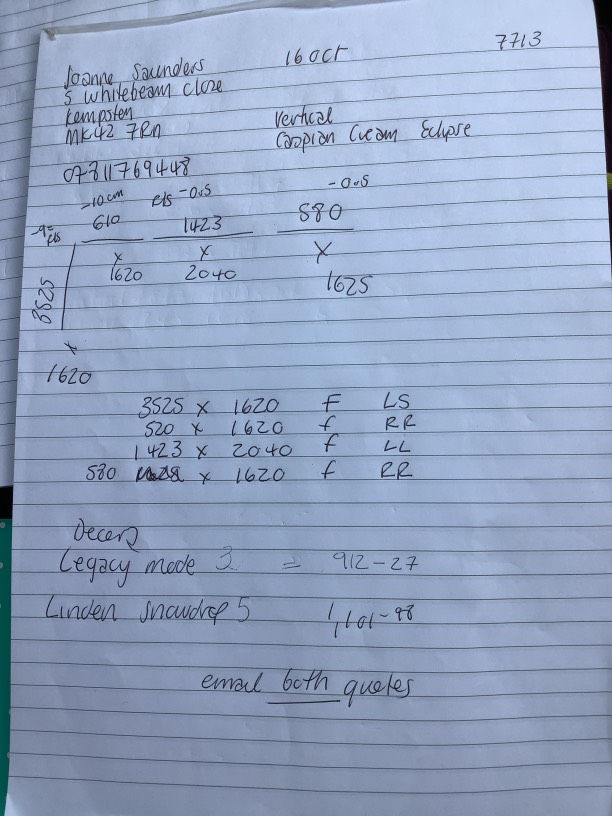 7713
Joanne Saunders
16 oct
5 whitebeam close
Kempston
MK42 7RN
Vertical
Cream Eclipse
07811769448
-10cm
e/s -0.5
-0.5
610
1423
580
x
x
x
1620
2040
1625
3525
x
1620
3525 x 1620 F LS
520 x 1620 f RR
1423 x 2040 f LL
580 x 1620 f RR
Legacy mode 3 = 912-27
Linden Snowdrop 5 1,101-98
email both quotes